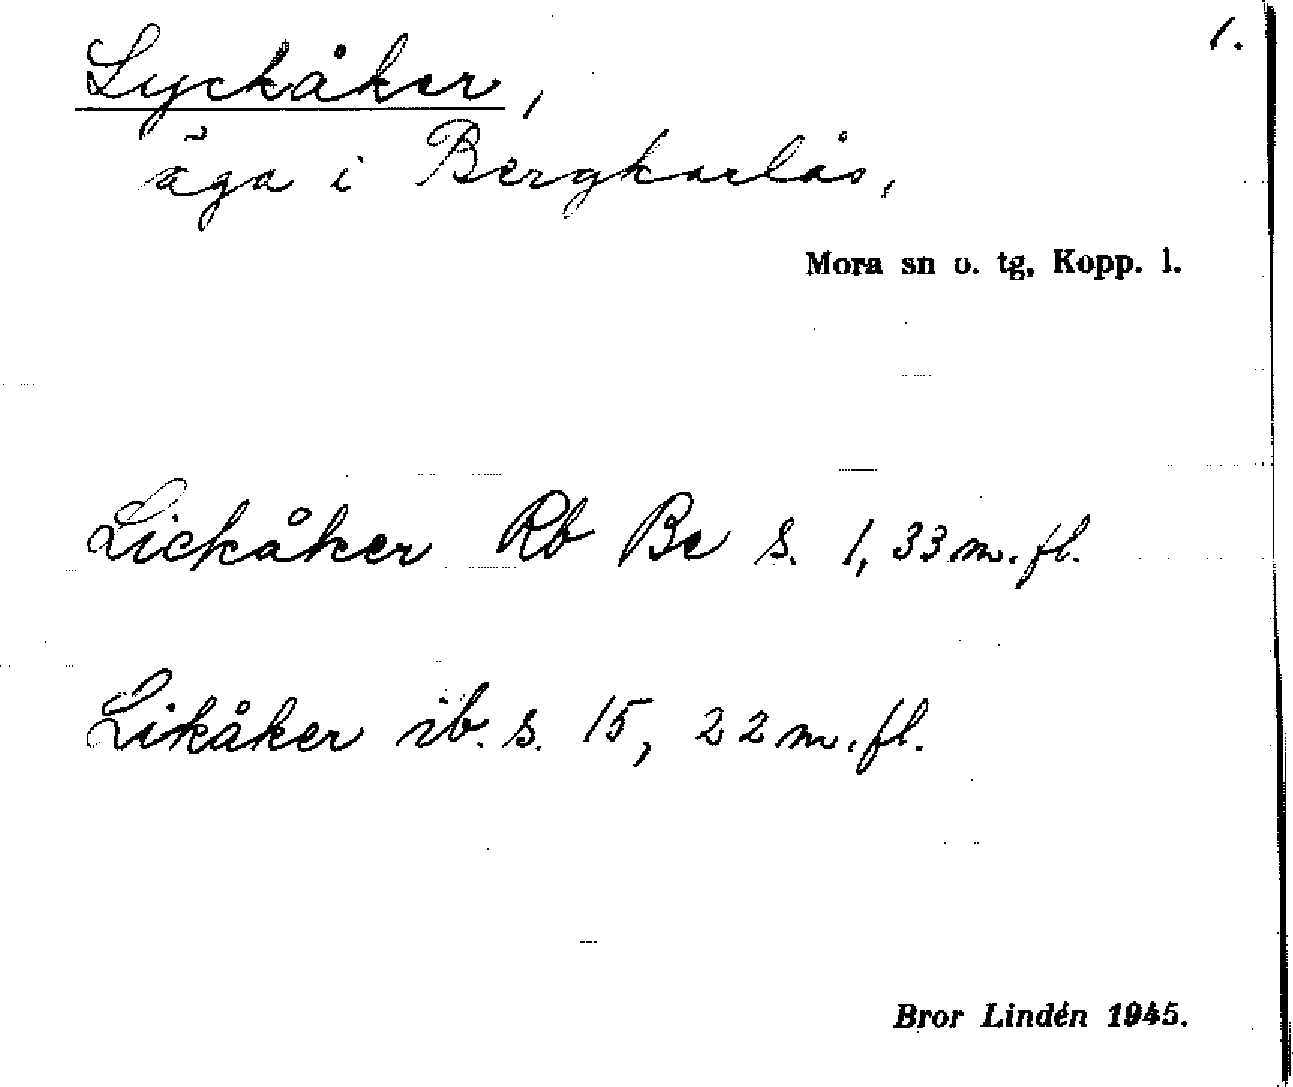 1.
Lyckåker,
äga i Bergkarlås,
Mora sn o. tg, Kopp. l.
Lickåker Rb Be s. 1, 33 m. fl.
Likåker ib. s. 15, 22 m. fl.
Bror Lindén 1945.